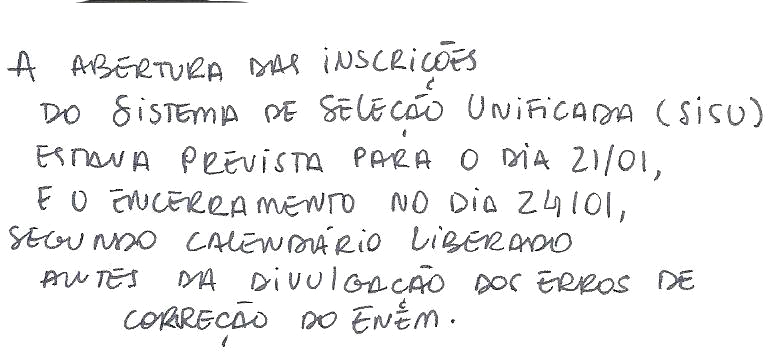 A ABERTURA DAS INSCRIÇÕES
DO SISTEMA DE SELEÇÃO UNIFICADA (SISU)
ESTAVA PREVISTA PARA O DIA 21/01,
E O ENCERRAMENTO NO DIA 24/01,
SEGUNDO CALENDÁRIO LIBERADO
ANTES DA DIVULGAÇÃO DOS ERROS DE
CORREÇÃO DO ENEM.